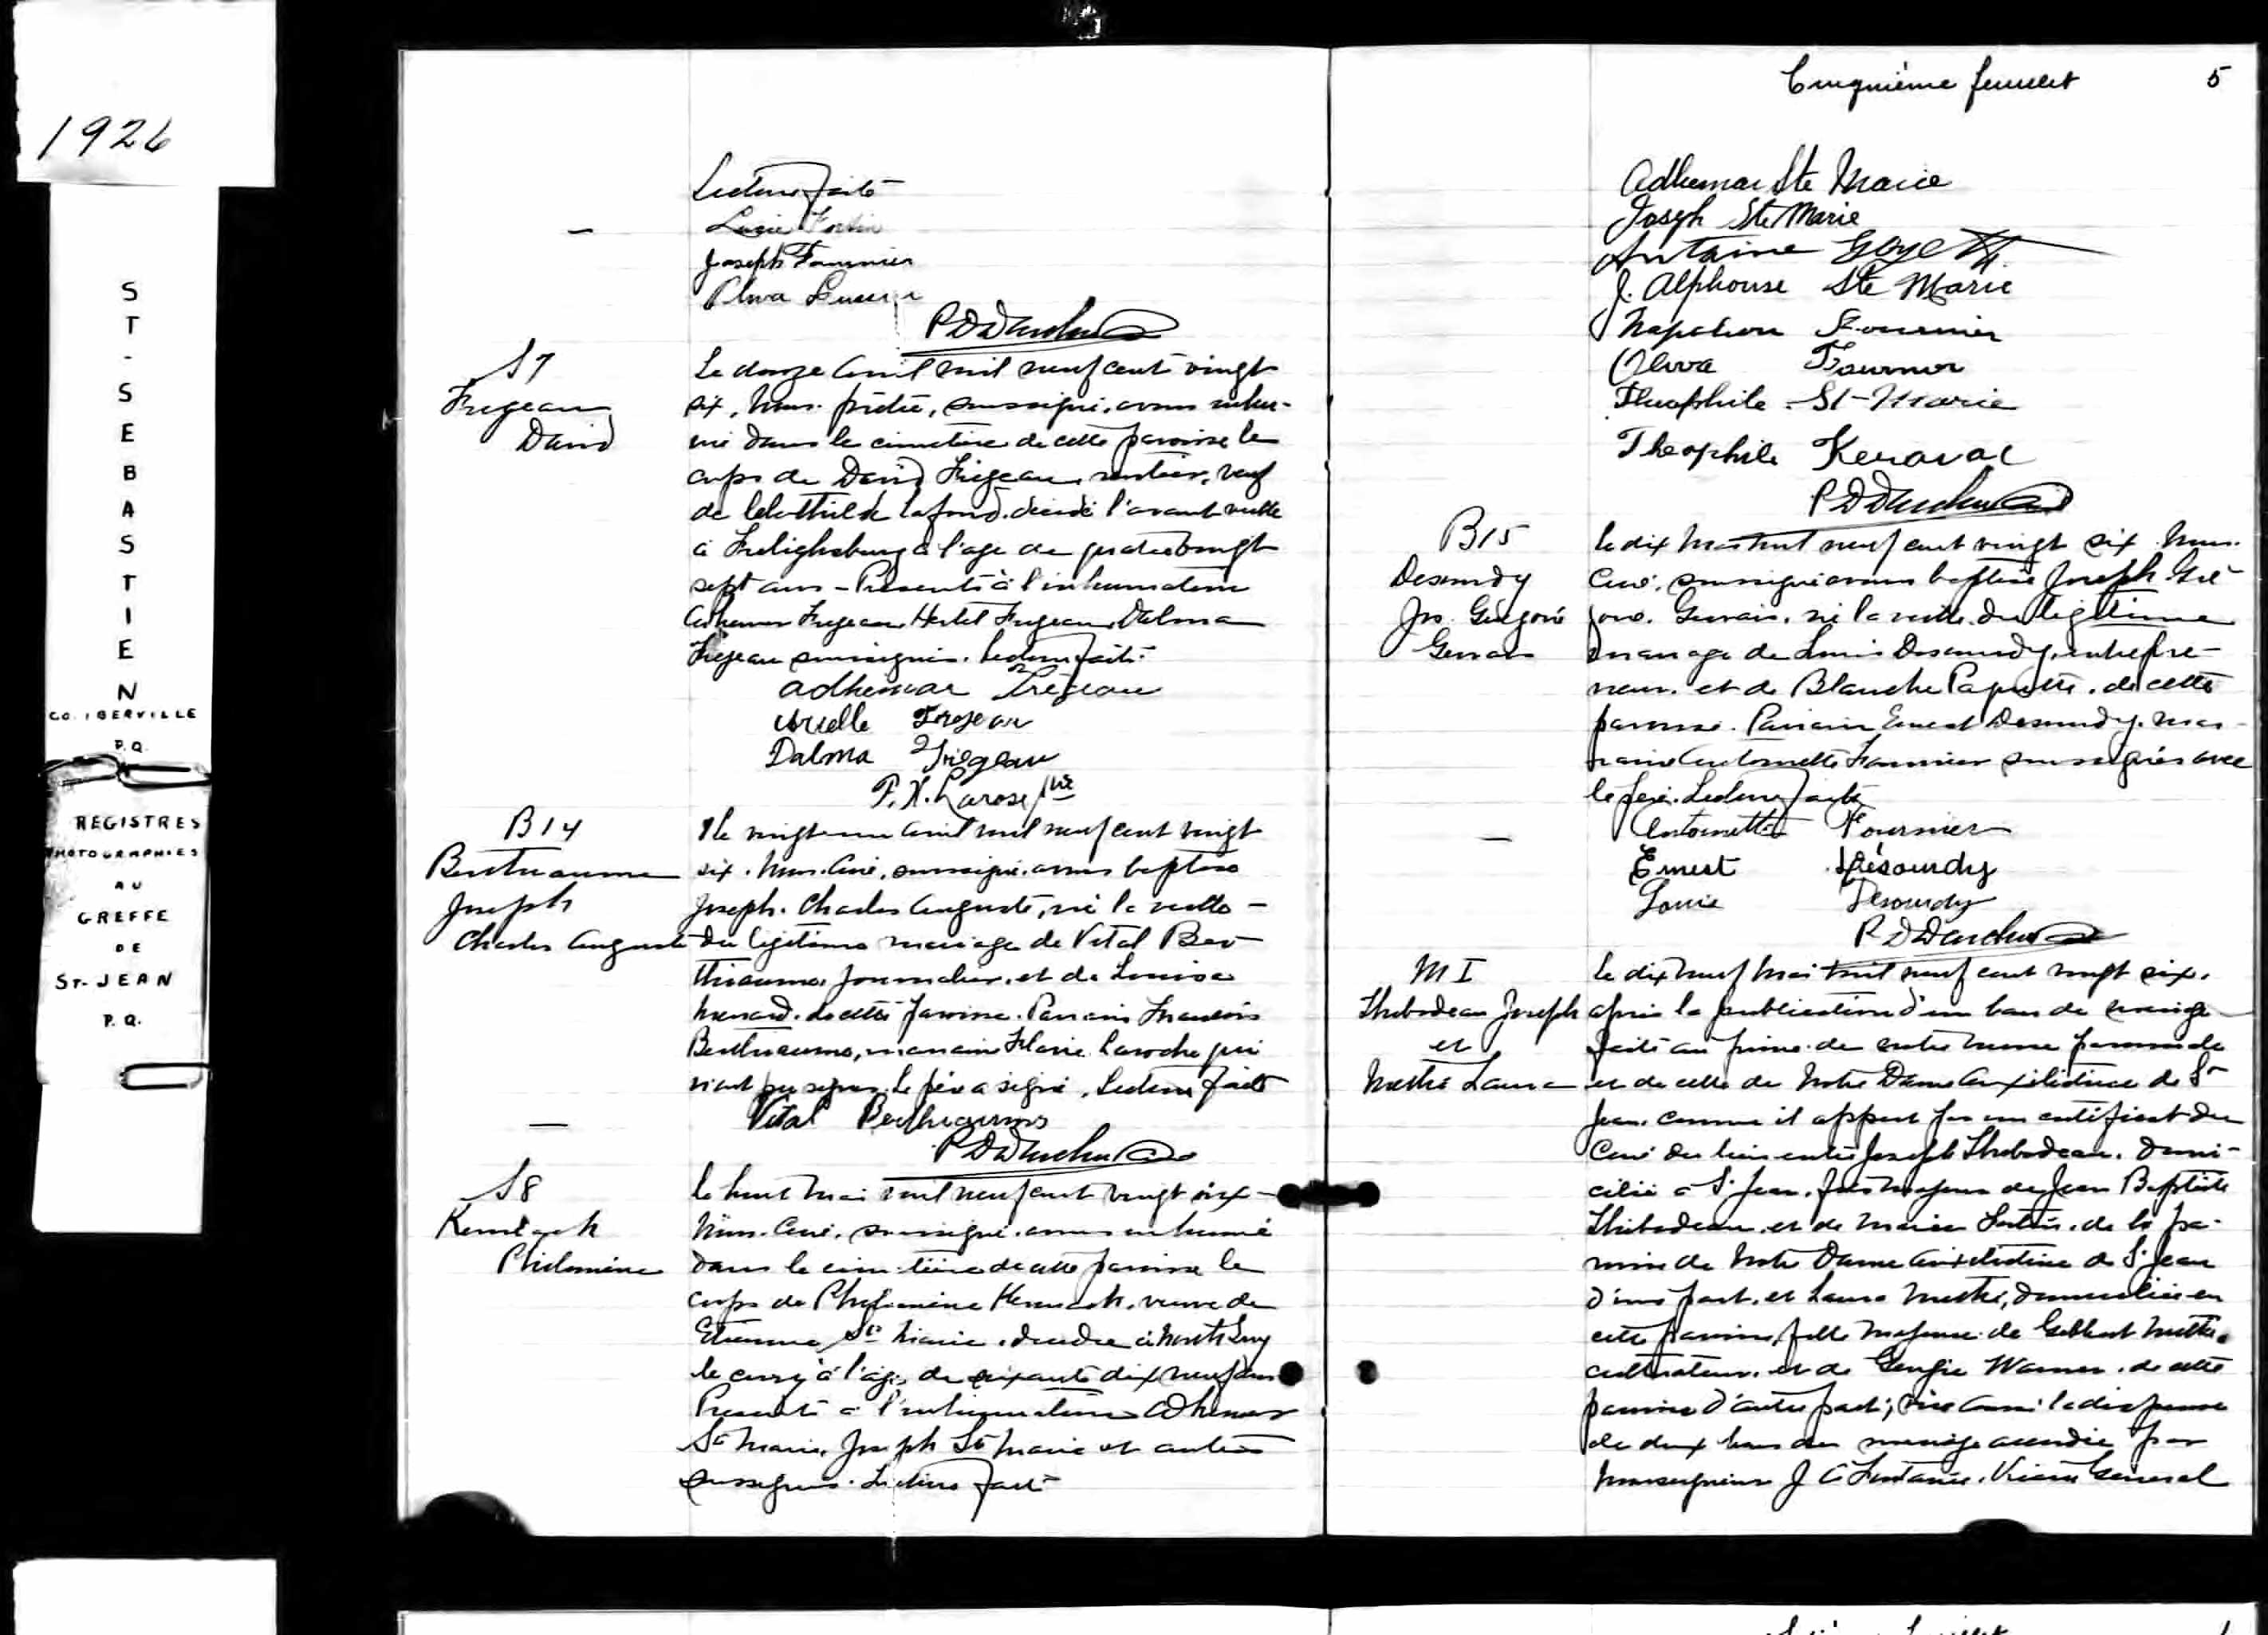 1926
ST-SEBASTIEN
CO. IBERVILLE
P.Q.
REGISTRES
PHOTOGRAPHIES
AU
GREFFE
DE
ST-JEAN
P.Q.
Lecture faite
Joseph Fournier
S7
Fregeau
David
Le douze avril mil neuf cent vingt
six, Nous, prêtre, soussigné, avons inhu-
mé dans le cimetière de cette paroisse le
corps de David Fregeau, rentier, veuf
de Clothilde Lafond, décédé l'avant veille
à Frelighsburg à l'age de quatre vingt
sept ans - Présents à l'inhumation
Adhemar Fregeau, Hertel Fregeau, Dalma
Fregeau soussignés. Lecture faite.
Adhémar Frégeau
Fregeau
Dalma Frégeau
F. X. Larose ptre
B14
Berthiaume
Joseph
Charles Auguste
le vingt-un avril mil neuf cent vingt
six, Nous, Curé, soussigné, avons baptisé
Joseph, Charles Auguste, né la veille
du légitime mariage de Vital Ber-
thiaume, journalier, et de Louisa
Menard, de cette paroisse. Parrain François
Berthiaume, marraine Laroche qui
n'ont pu signer. Le père a signé. Lecture faite
Vital Berthiaume
S8
Philomène
le huit mai mil neuf cent vingt six
Nous, Curé, soussigné, avons inhumé
dans le cimetière de cette paroisse le
corps de Philomène veuve de
Etienne Ste Marie, décédée à
le à l'age de soixante dix neuf ans
Présents à l'inhumation Adhemar
Ste Marie, Joseph Ste Marie et autres
soussignés. Lecture faite
Cinquième feuillet 5
Adhemar Ste Marie
Joseph Ste Marie
Antoine Goyette
J. Alphonse Ste Marie
Napoléon Fournier
Oliva Fournier
Theophile St-Marie
Theophile Keravac
B15
Desourdy
Jos. Grégoire
Gervais
le dix Mai mil neuf cent vingt six, Nous,
Curé, soussigné avons baptisé Joseph Gré-
goire, Gervais, né la veille, du légitime
mariage de Louis Desourdy, entrepre-
neur, et de Blanche Paquette, de cette
paroisse. Parrain Ernest Desourdy, mar-
raine Antoinette Fournier soussignés avec
le père. Lecture faite
Antoinette Fournier
Ernest Désourdy
Louis Desourdy
M I
Thibodeau Joseph
et
Laura
le dix neuf Mai mil neuf cent vingt six,
après la publication d'un ban de mariage
faite au prône de notre messe paroissiale
et de celle de Notre Dame Auxiliatrice de St
Jean, comme il appert par un certificat du
Curé du lieu entre Joseph Thibodeau, domi-
cilié à St Jean, fils majeur de Jean Baptiste
Thibodeau et de Marie de la pa-
roisse de Notre Dame Auxiliatrice de St Jean
d'une part, et Laura domiciliée en
cette paroisse, fille majeure de Gilbert
cultivateur, et de Georgie Warner, de cette
paroisse d'autre part; vu aussi la dispense
de deux bans de mariage accordée par
Monseigneur J Vicaire Général